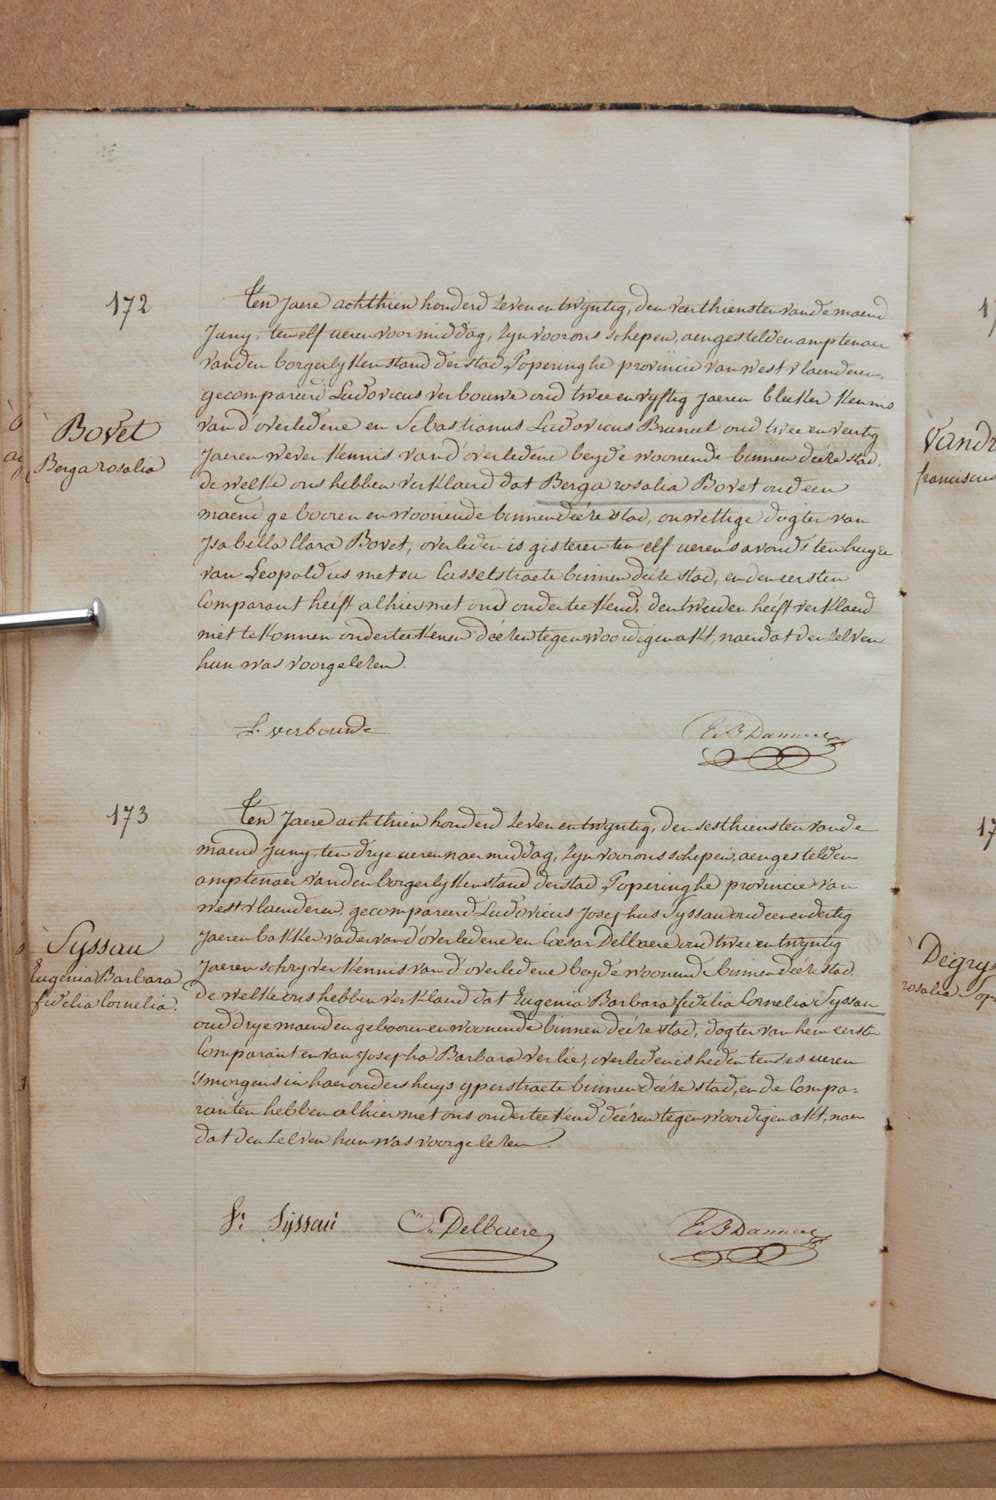 172
Bovet
Berga rosalia
Ten Jaere achthien honderd zeven en twyntig, den veerthiensten van de maend
Juny, ten elf ueren voormiddag, zyn voor ons schepen, aengestelden amptenaer
van den borgerlyken stand der stad Poperinghe provincie van westvlaenderen,
gecompareerd Ludovicus verbouwe oud twee en vyftig Jaeren bleeker Kennis
van d'overledene en Sebastianus Ludovicus Brunel oud twee en
Jaeren wever Kennis van d'overledene beyde woonende binnen deéze stad
de welke ons hebben verklaerd dat Berga rosalia Bovet oud een
maend gebooren en woonende binnen deéze stad, onwettige dogter van
Isabella Clara Bovet, overleden is gisteren ten elf ueren s'avonds ten huyze
van Leopoldus Casselstraete binnen deéze stad, en den eersten
Comparant heéft alhier met ons onderteekend, den tweeden heéft verklaerd
niet te konnen onderteekenen deézen tegenwoordigen akt, naer dat den zelven
hun was voorgelezen.
L. verbouwe
173
Syssau
Eugenia Barbara
fidelia Cornelia.
Ten Jaere achthien honderd zeven en twyntig, den sesthiensten van de
maend Juny, ten drye ueren naermiddag, zyn voor ons schepen, aengestelden
amptenaer van den borgerlyken stand der stad Poperinghe provincie van
westvlaenderen, gecompareerd Ludovicus Josephus Syssau oud een en dertig
Jaeren bakker vader van d'overledene en Cæsar Delbaere oud twee en twyntig
Jaeren schryver Kennis van d'overledene beyde woonende binnen deéze stad
de welke ons hebben verklaerd dat Eugenia Barbara fidelia Cornelia Syssau
oud drye maenden gebooren en woonende binnen deéze stad, dogter van hem eersten
Comparant en van Josepha Barbara verlie, overleden is heden ten ses ueren
s'morgens in haer ouders huys yperstraete binnen deéze stad, en de Compa-
ranten hebben alhier met ons onderteekend deézen tegenwoordigen akt, naer
dat den zelven hun was voorgelezen.
Syssau
C. Delbaere
Degrys
rosalia